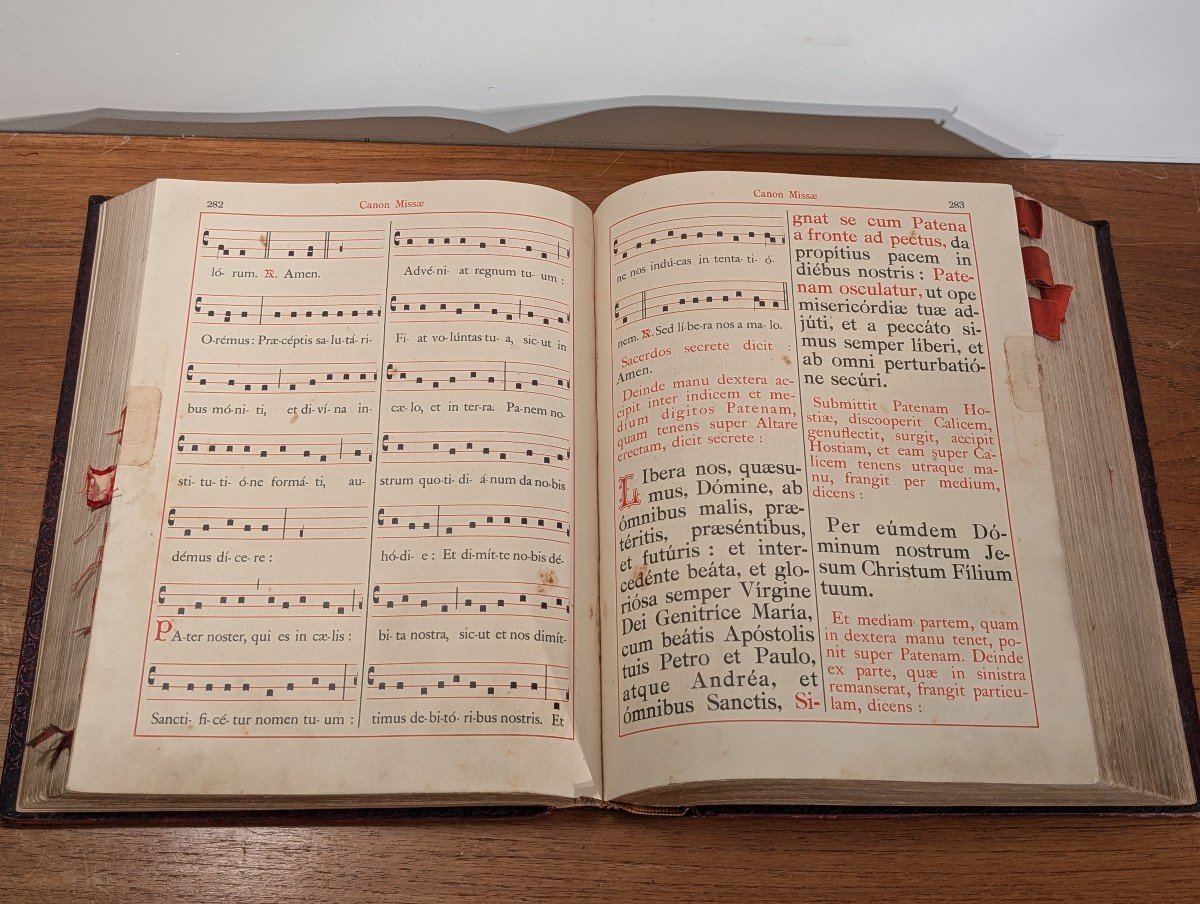 282
Canon Missæ
ló- rum. ℟. Amen.
O-rémus: Præ-céptis sa-lu-tá-ri-
bus mó-ni- ti, et di-ví-na in-
sti- tu- ti- ó-ne formá- ti, au-
démus dí-ce-re :
PA-ter noster, qui es in cæ-lis :
Sancti- fi-cé-tur nomen tu-um :
Advé-ni- at regnum tu- um :
Fi- at vo-lúntas tu- a, sic-ut in
cæ-lo, et in ter-ra. Pa-nem no-
strum quo-ti- di- á-num da no-bis
hó-di- e : Et di-mít-te no-bis dé-
bi-ta nostra, sic-ut et nos dimít-
timus de-bi-tó-ri-bus nostris. Et
Canon Missæ
283
ne nos indú-cas in tenta- ti- ó-
nem. ℟. Sed lí-be-ra nos a ma-lo.
Sacerdos secrete dicit :
Amen.
Deinde manu dextera ac-
cipit inter indicem et me-
dium digitos Patenam,
quam tenens super Altare
erectam, dicit secrete :
LIbera nos, quæsu-
mus, Dómine, ab
ómnibus malis, præ-
téritis, præséntibus,
et futúris : et inter-
cedénte beáta, et glo-
riósa semper Vírgine
Dei Genitríce María,
cum beátis Apóstolis
tuis Petro et Paulo,
atque Andréa, et
ómnibus Sanctis, Si-
gnat se cum Patena
a fronte ad pectus, da
propítius pacem in
diébus nostris : Pate-
nam osculatur, ut ope
misericórdiæ tuæ ad-
júti, et a peccáto si-
mus semper líberi, et
ab omni perturbatió-
ne secúri.
Submittit Patenam Ho-
stiæ, discooperit Calicem,
genuflectit, surgit, accipit
Hostiam, et eam super Ca-
licem tenens utraque ma-
nu, frangit per medium,
dicens :
Per eúmdem Dó-
minum nostrum Je-
sum Christum Fílium
tuum.
Et mediam partem, quam
in dextera manu tenet, po-
nit super Patenam. Deinde
ex parte, quæ in sinistra
remanserat, frangit particu-
lam, dicens :